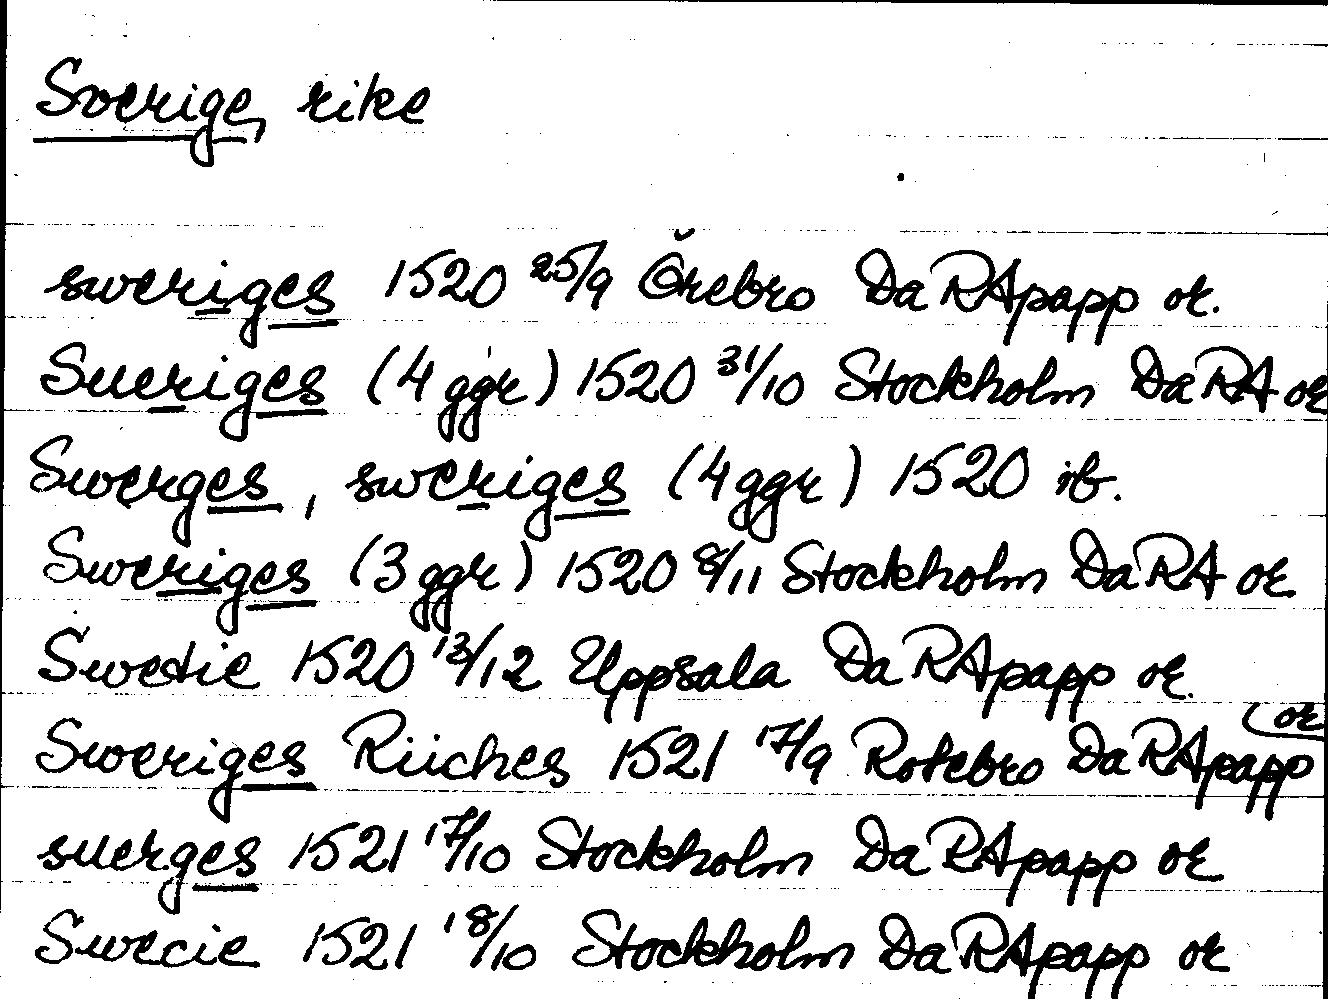 Sverige, rike
sweriges 1520 25/9 Örebro DaRApapp or.
Sueriges (4 ggr) 1520 31/10 Stockholm DaRA or
Swerges, sweriges (4 ggr) 1520 ib.
Sweriges (3 ggr) 1520 8/11 Stockholm DaRA or
Swetie 1520 13/12 Uppsala DaRApapp or.
Sweriges Riiches 1521 17/9 Rotebro DaRApapp (or
suerges 1521 17/10 Stockholm DaRApapp or
Swecie 1521 18/10 Stockholm DaRApapp or